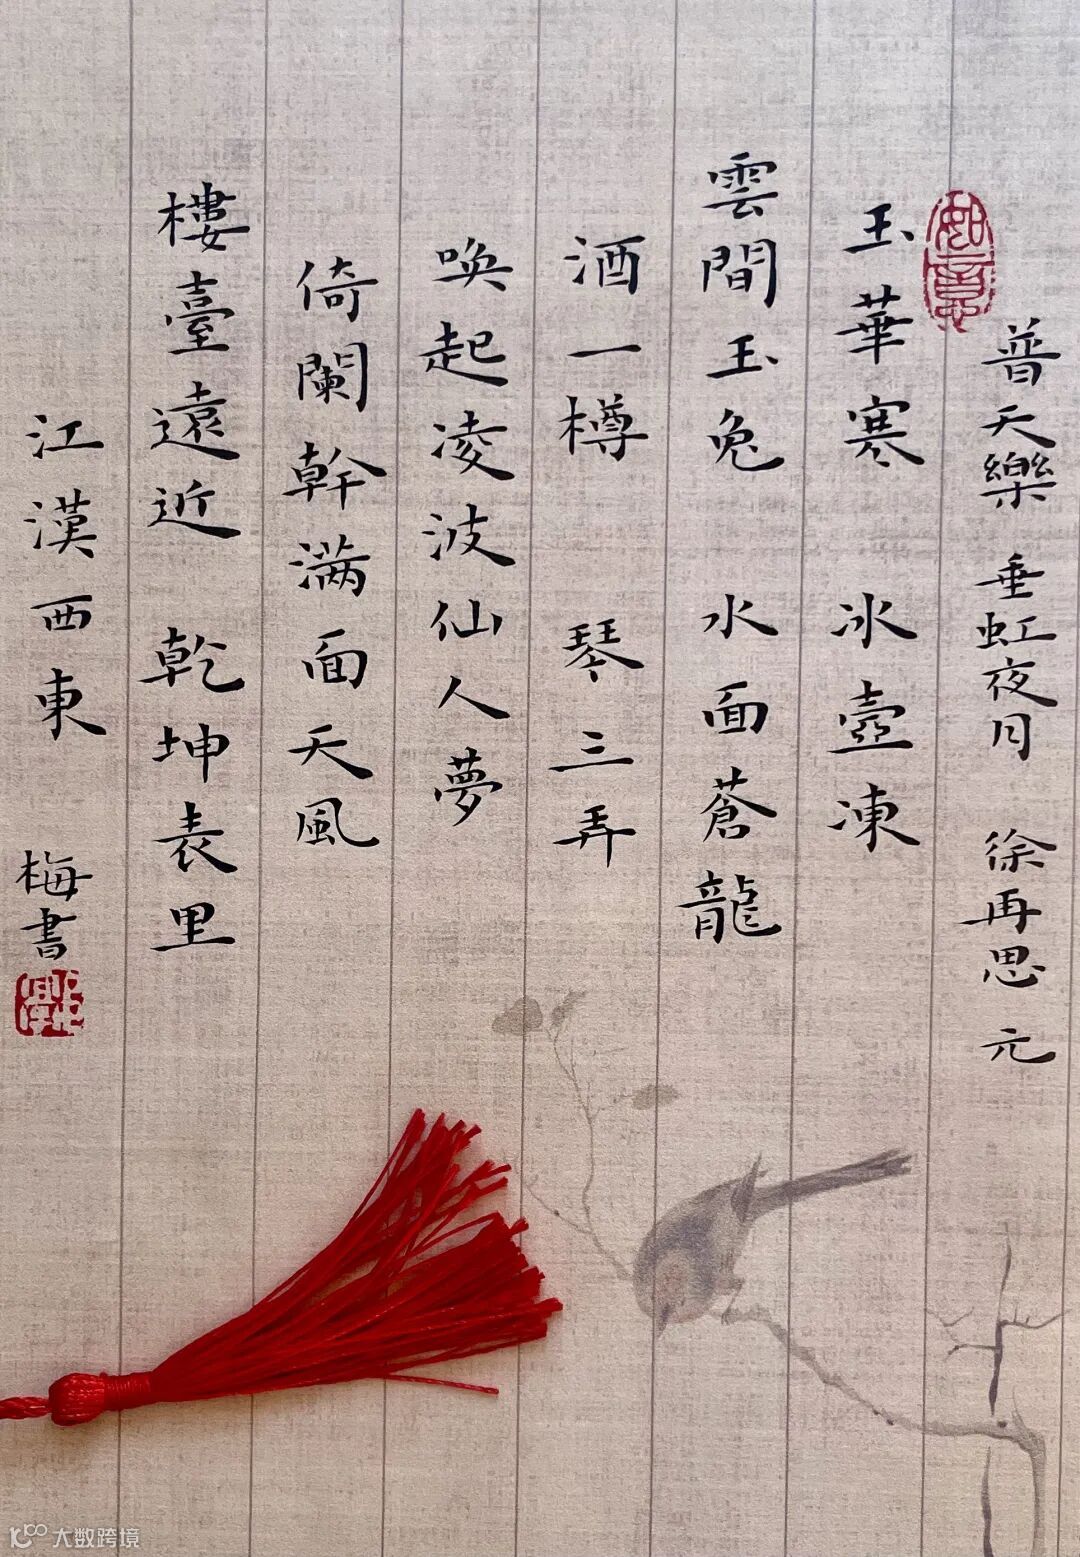 普天樂 垂虹夜月 徐再思 元
如意
玉華寒 冰壺凍
雲間玉兔 水面蒼龍
酒一樽 琴三弄
唤起凌波仙人夢
倚闌幹满面天風
樓臺遠近 乾坤表里
江漢西東 梅書
大数跨境